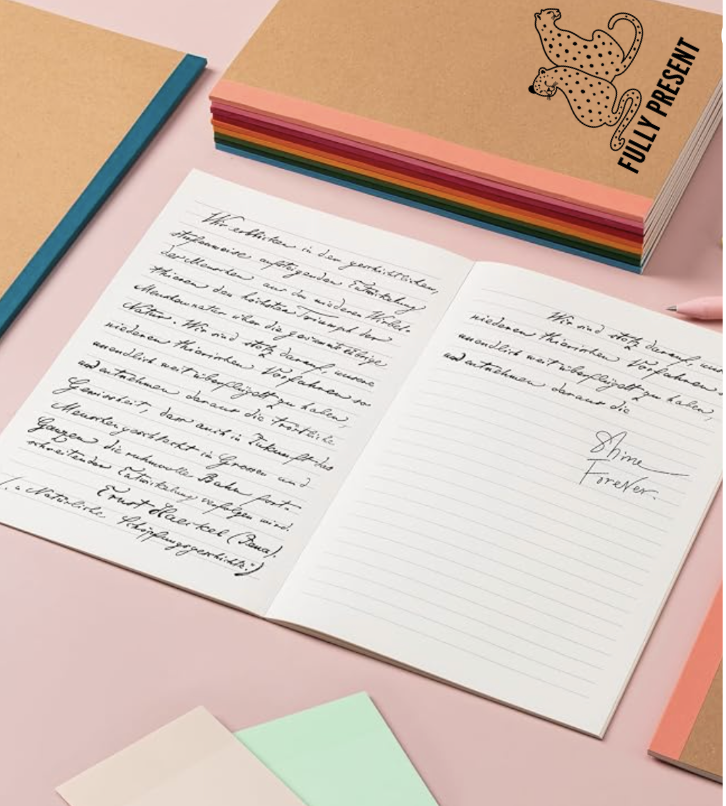 FULLY PRESENT
Wir erblicken in der geschichtlichen,
stufenweise aufsteigenden Entwickelung
des Menschen aus den niederen Wirbel-
thieren den höchsten Triumph der
Menschennatur über die gesammte übrige
Natur. Wir sind stolz darauf, unsere
niederen thierischen Vorfahren so
unendlich weit überflügelt zu haben,
und entnehmen daraus die tröstliche
Gewissheit, dass auch in Zukunft das
Menschengeschlecht im Grossen und
Ganzen die ruhmvolle Bahn fort-
schreitender Entwickelung verfolgen wird.
Ernst Haeckel (Jena)
Natürliche Schöpfungsgeschichte.)
Wir sind stolz darauf, un
niederen thierischen Vorfahren
unendlich weit überflügelt zu haben,
und entnehmen daraus die
Shine
ForeVer.